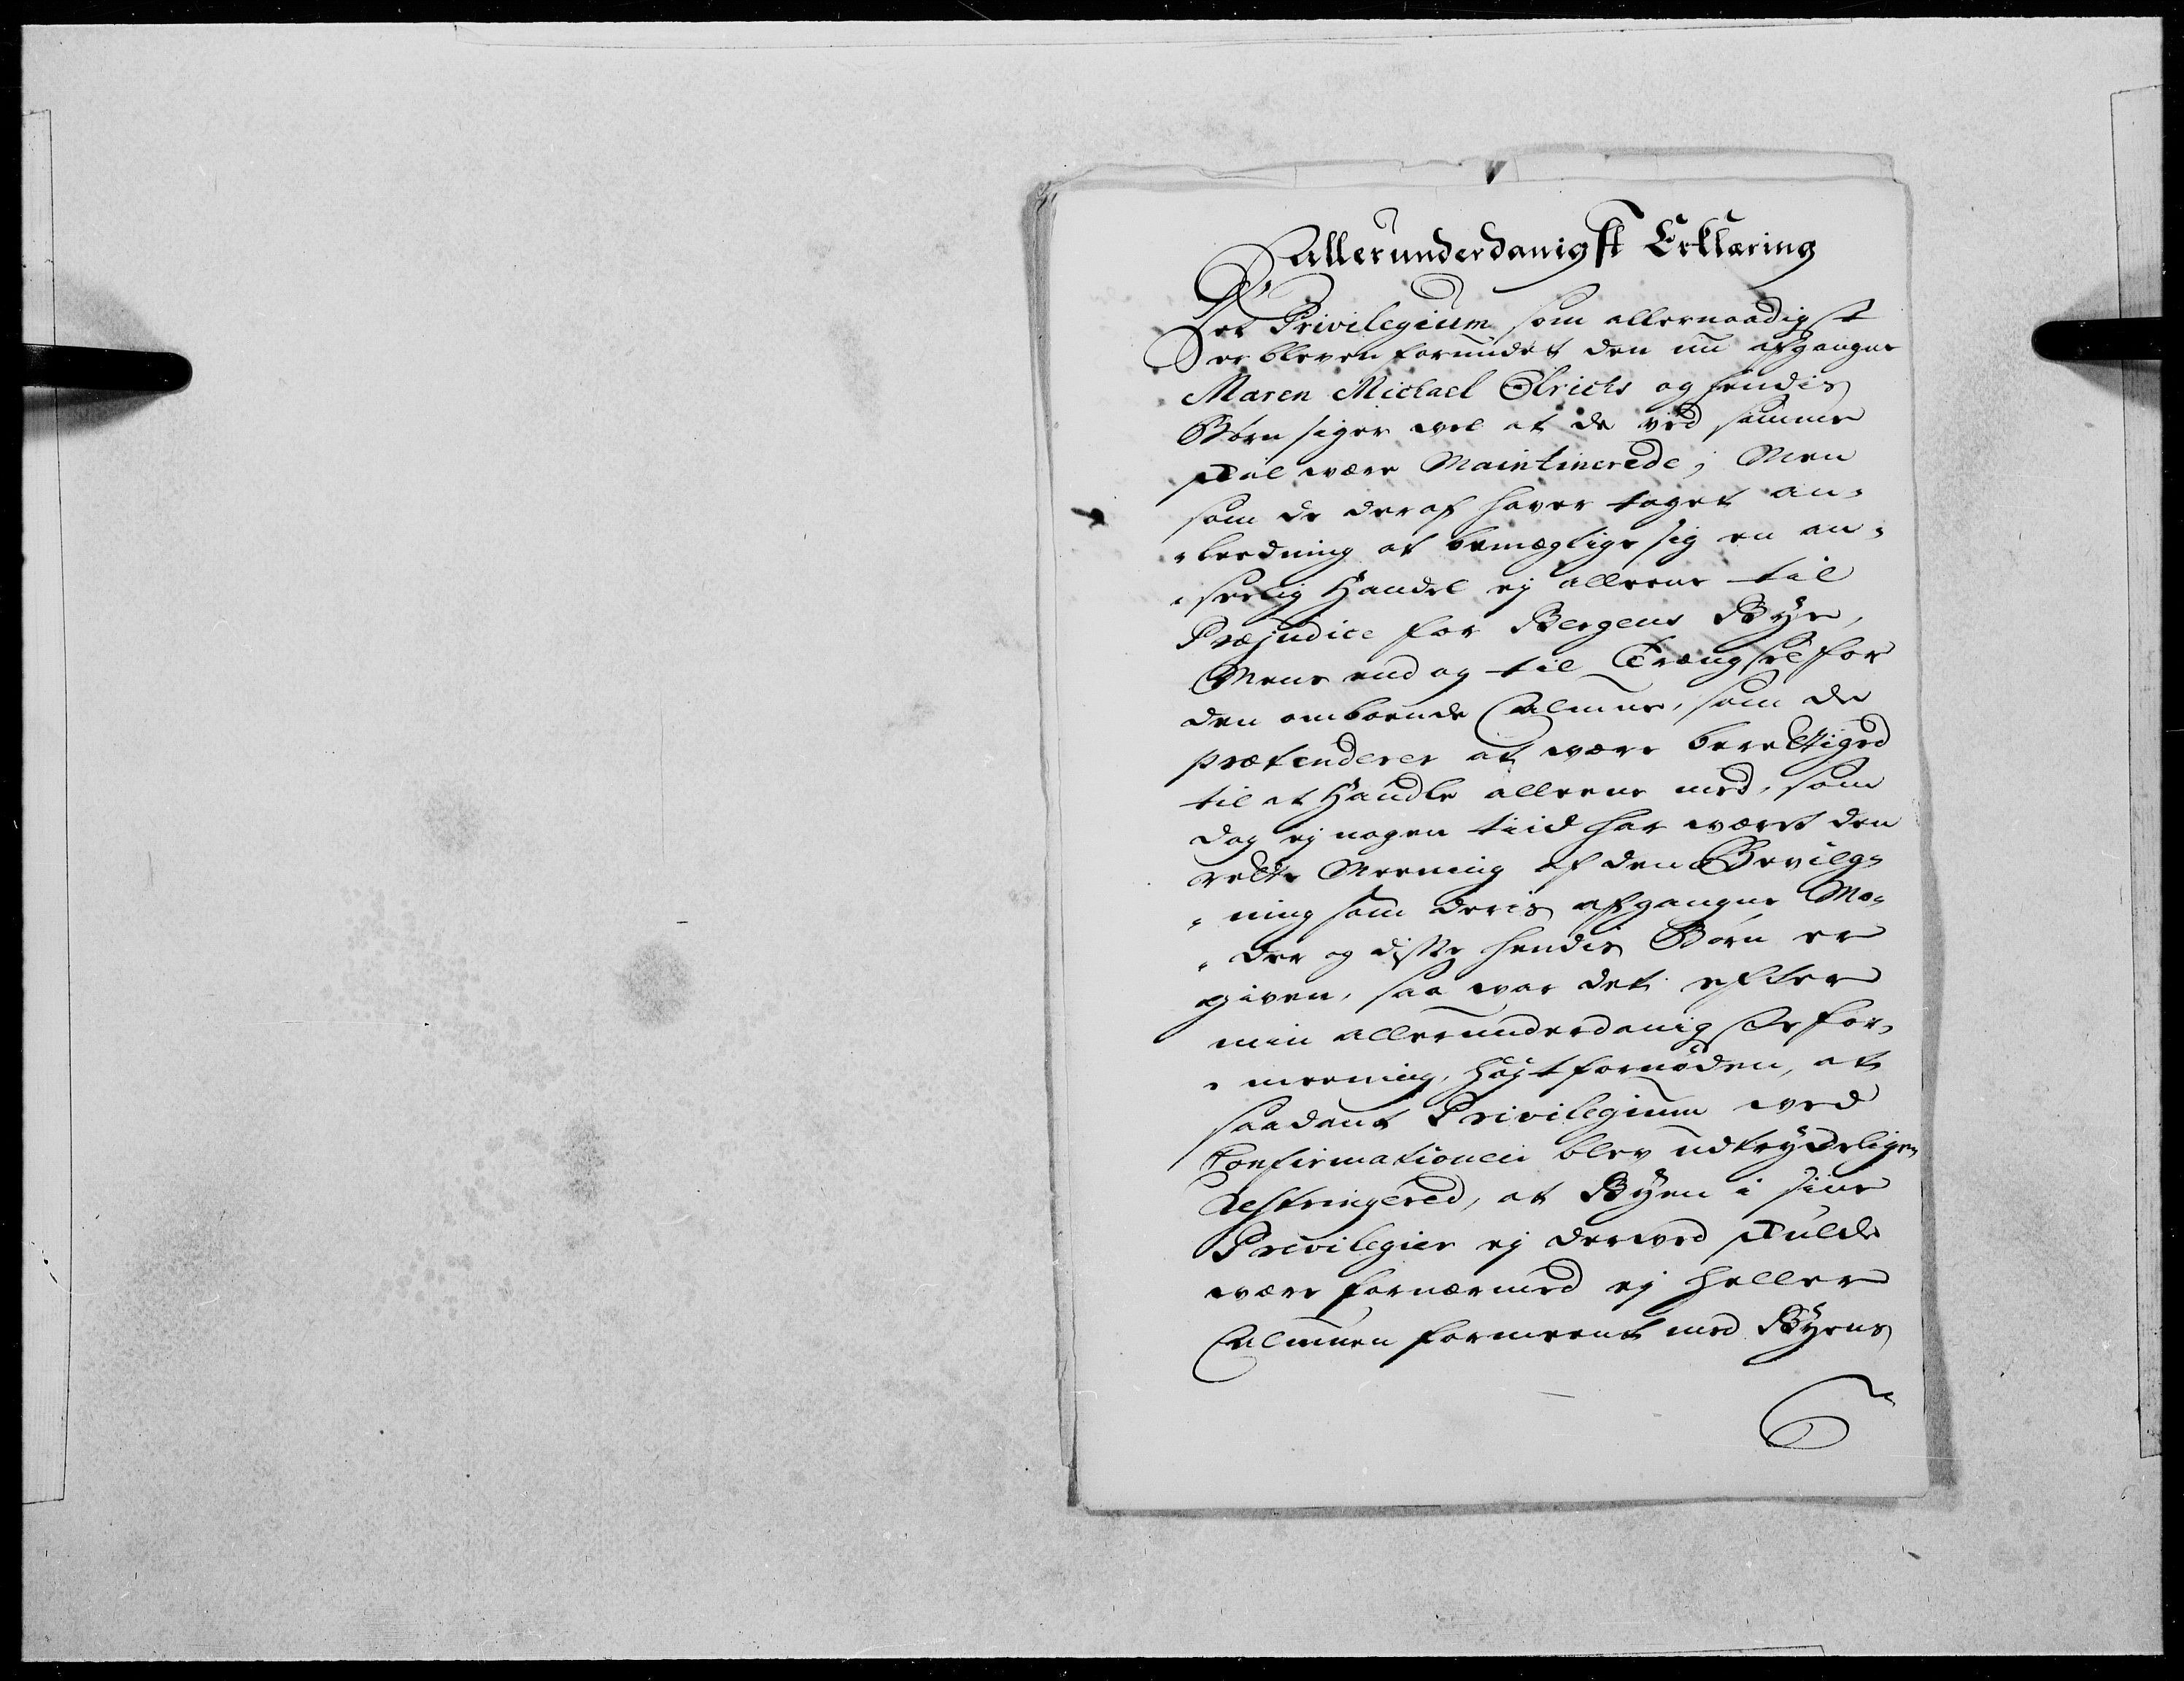 Allerunderdanigst Erklæring
Det Privilegium som allernaadigst
er bleven forundet den nu afgangne
Maren Michael Ølrichs og hendis
Børn siger vel at de ved samme
skal være Maintinerede; Men
som de deraf haver taget an-
-leedning at bemægtige sig en an-
-seelig Handel ej alleene til
Præjudice for Bergens Bye,
Mens end og til Trængsel for
den omboende Almue, som de
prætenderer at være berettiged
til at Handle alleene med, som
dog ej nogen tiid har været den
rette Meening af den Bevilg-
-ning som deris afgangne Mo-
-der og disse hendis Børn er
given, saa var det efter
min allerunderdanigste for-
-meening, højt fornøden, at
saadant Privilegium ved
Confirmationen blev udtrykeligen
Restringered, at Byen i sine
Privilegier ej derved skulde
være fornærmed ej heller
Almuen formeent med Byens